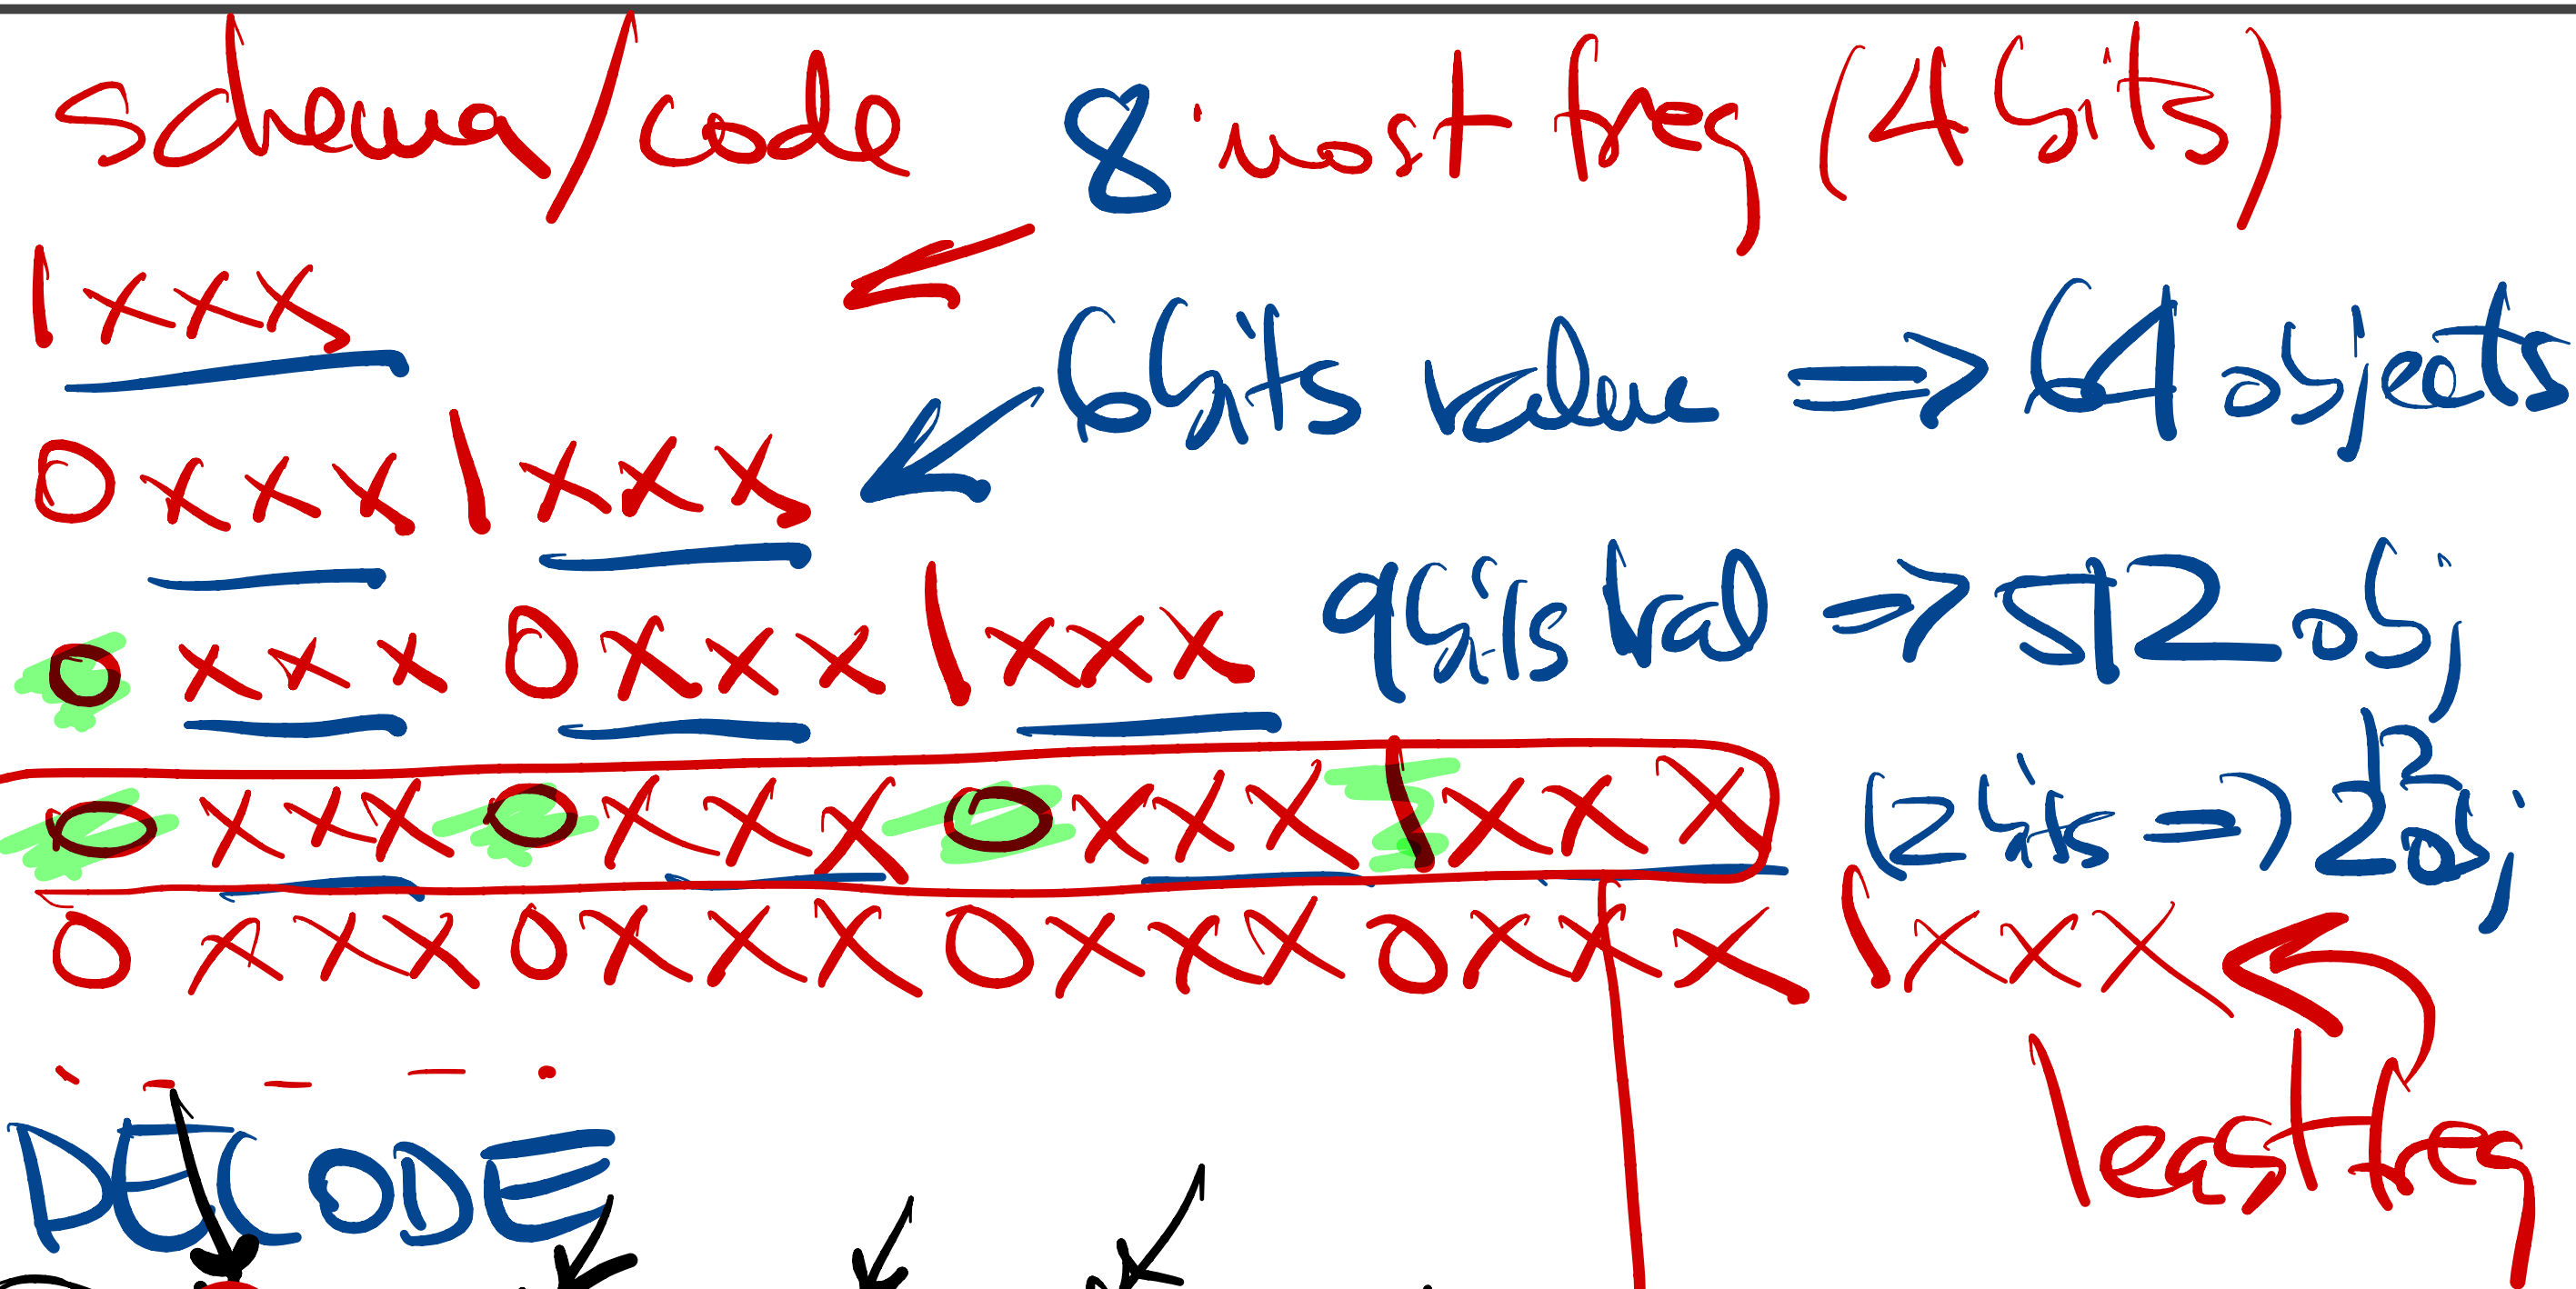 schema/code 8 most freq (4 bits)
1xxx
6 bits value => 64 objects
0xxx1xxx
0xxx0xxx1xxx 9 bits val => 512 obj
0xxx0xxx0xxx1xxx 12 bits => 2^12 obj
0xxx0xxx0xxx0xxx1xxx
least freq
DECODE